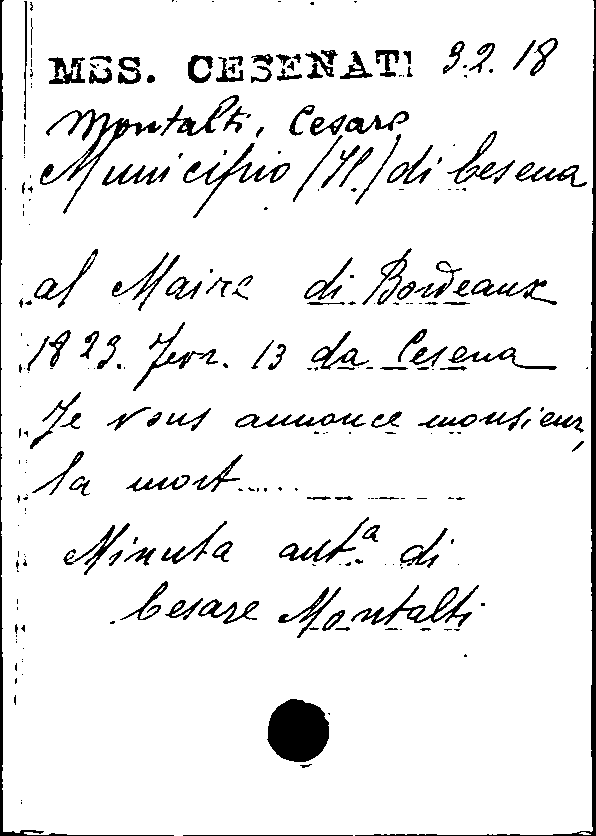 MSS. CESENATI 3.2.18
Montalti, Cesare
Municipio (Il) di Cesena
al Maire di Bordeaux
1823. Febr. 13 da Cesena
Je vous annonce monsieur,
la mort.....
Minuta aut.ª di
Cesare Montalti